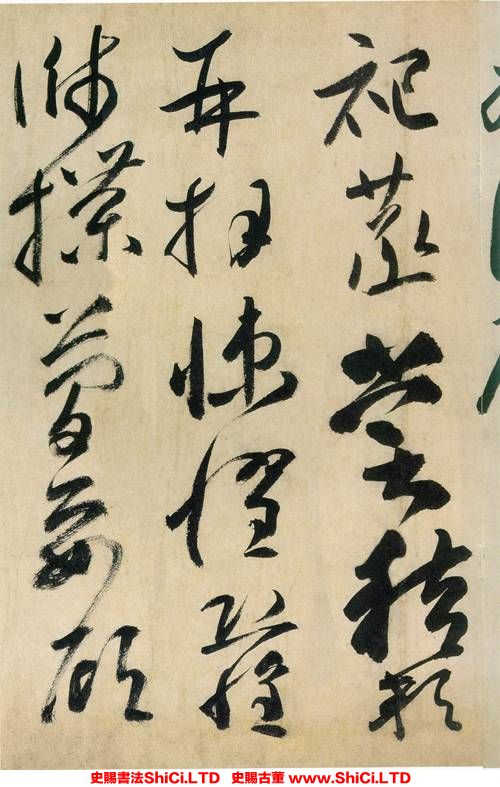 祀蒸嘗稽顙
再拜悚懼恐惶
牋牒簡要顧
史賜書法ShiCi.LTD 史賜古董 www.ShiCi.LTD